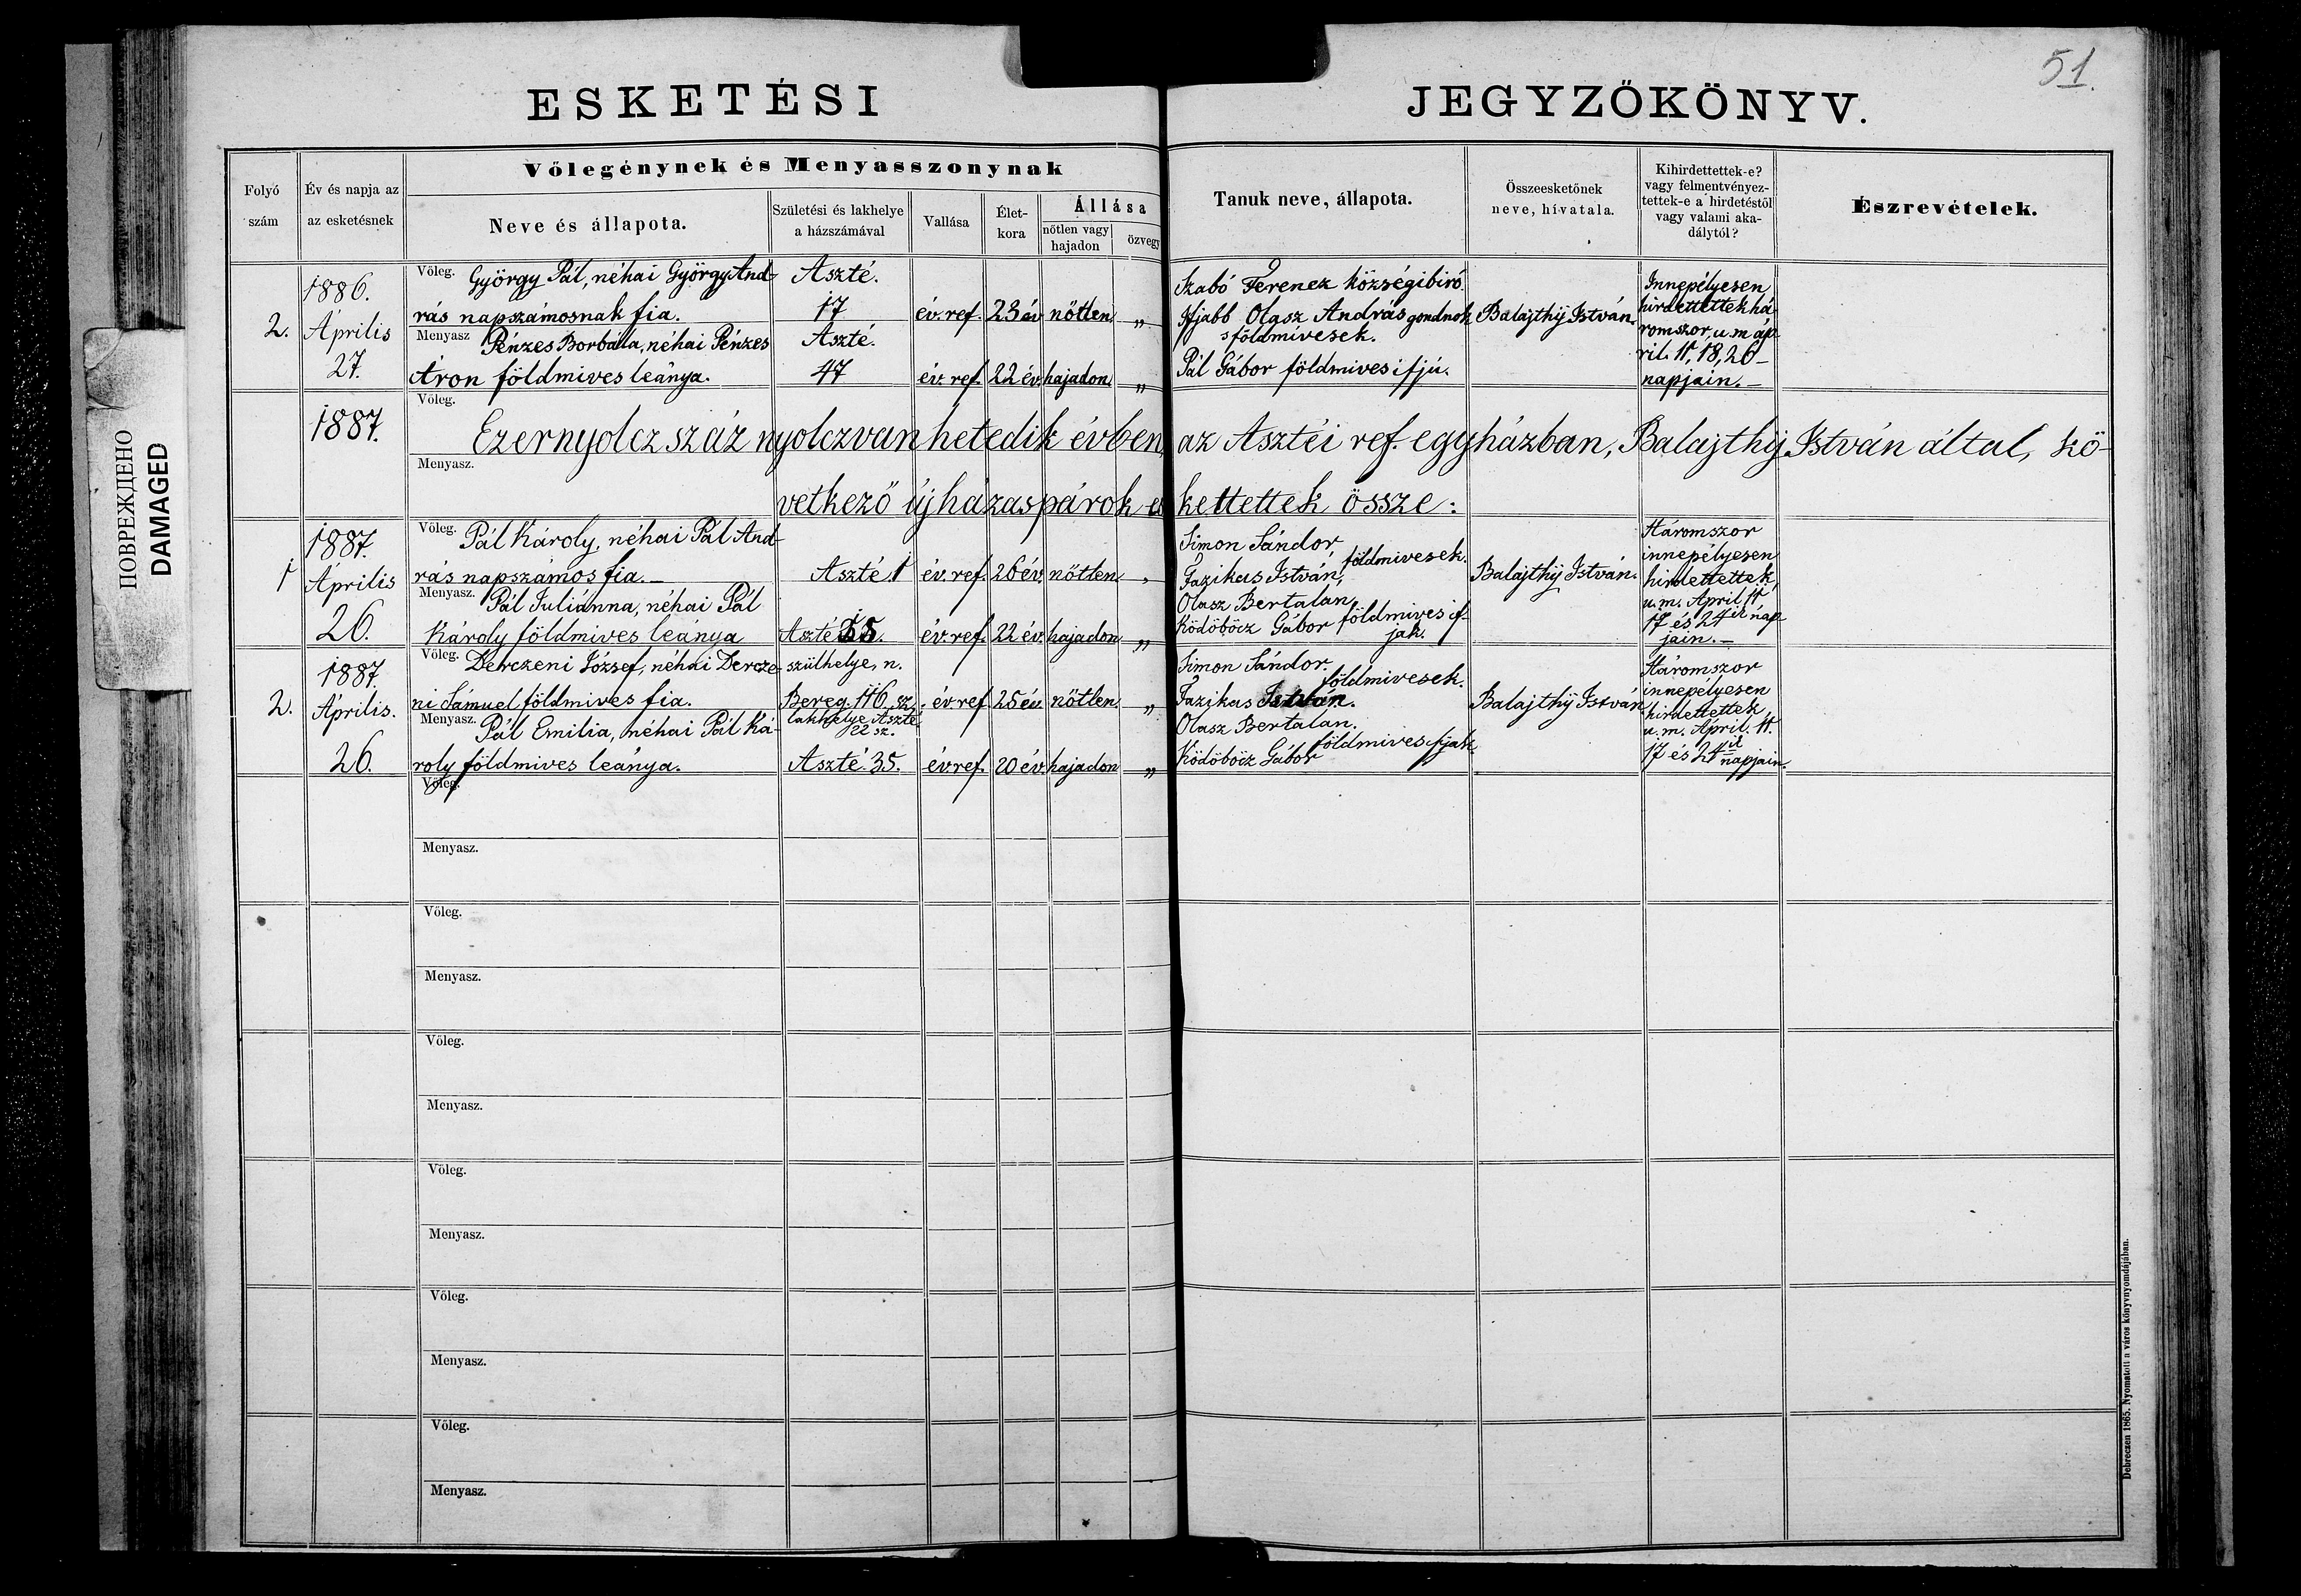 51.
ESKETÉSI JEGYZŐKÖNYV.
Folyó szám
Év és napja az az esketésnek
Vőlegénynek és Menyasszonynak
Neve és állapota.
Születési és lakhelye a házszámával
Vallása
Élet-kora
Állása
nőtlen vagy hajadon
özvegy
Tanuk neve, állapota.
Összeesketőnek neve, hívatala.
Kihirdettettek-e?
vagy felmentvényez-
tettek-e a hirdetéstől
vagy valami aka-
dálytól?
Észrevételek.
2.
1886.
Április
27.
Vőleg. György Pál, néhai György And-
rás napszámosnak fia.
Aszté.
17
év. ref.
23 év
nőtlen
„
Menyasz Pénzes Borbála, néhai Pénzes
Áron földmives leánya.
Aszté.
47
év. ref.
22 év.
hajadon
„
Szabó Ferencz községi biró.
Ifjabb Olasz András gondnok
s földmivesek.
Pál Gábor földmives ifjú.
Balajthy István.
Innepélyesen
hirdettettek há
romszor, u. m. áp
ril. 11, 18, 26 –
napjain. –
1887.
Vőleg.
Ezernyolcz száz nyolczvan hetedik évben, az Asztéi ref. egyházban, Balajthy István által, kö-
Menyasz.
vetkező új házaspárok es kettettek össze:
1
1887.
Április
26.
Vőleg. Pál Károly, néhai Pál And-
rás napszámos fia. –
Aszté. 1
év. ref.
26 év.
nőtlen
„
Menyasz. Pál Juliánna, néhai Pál
Károly földmives leánya
Aszté 35.
év. ref.
22 év.
hajadon
„
Simon Sándor,
Fazikas István, földmivesek.
Olasz Bertalan,
Ködöböcz Gábor földmives if-
jak.
Balajthy István.
Háromszor
innepélyesen
hirdettettek,
u. m. April. 11
17 és 24ik nap
jain. –
2.
1887.
Április.
26.
Vőleg. Derczeni József, néhai Dercze-
ni Sámuel földmives fia.
szülhelye, n.
Bereg. 116. sz.
lakhelye Aszté
22 sz.
év. ref
25 év.
nőtlen
„
Menyasz. Pál Emilia, néhai Pál Ká-
roly földmives leánya.
Aszté. 35.
év. ref.
20 év
hajadon
„
Simon Sándor.
földmivesek.
Fazikas István.
Olasz Bertalan.
Ködöböcz Gábor földmives ifjak
Balajthy István
Háromszor
innepélyesen
hirdettettek,
u. m. April. 11.
17 és 24ik
napjain.
Vőleg.
Menyasz.
Vőleg.
Menyasz.
Vőleg.
Menyasz.
Vőleg.
Menyasz.
Vőleg.
Menyasz.
Vőleg.
Menyasz.
Debreczen 1865. Nyomatott a város könyvnyomdájában.
ПОВРЕЖДЕНО
DAMAGED